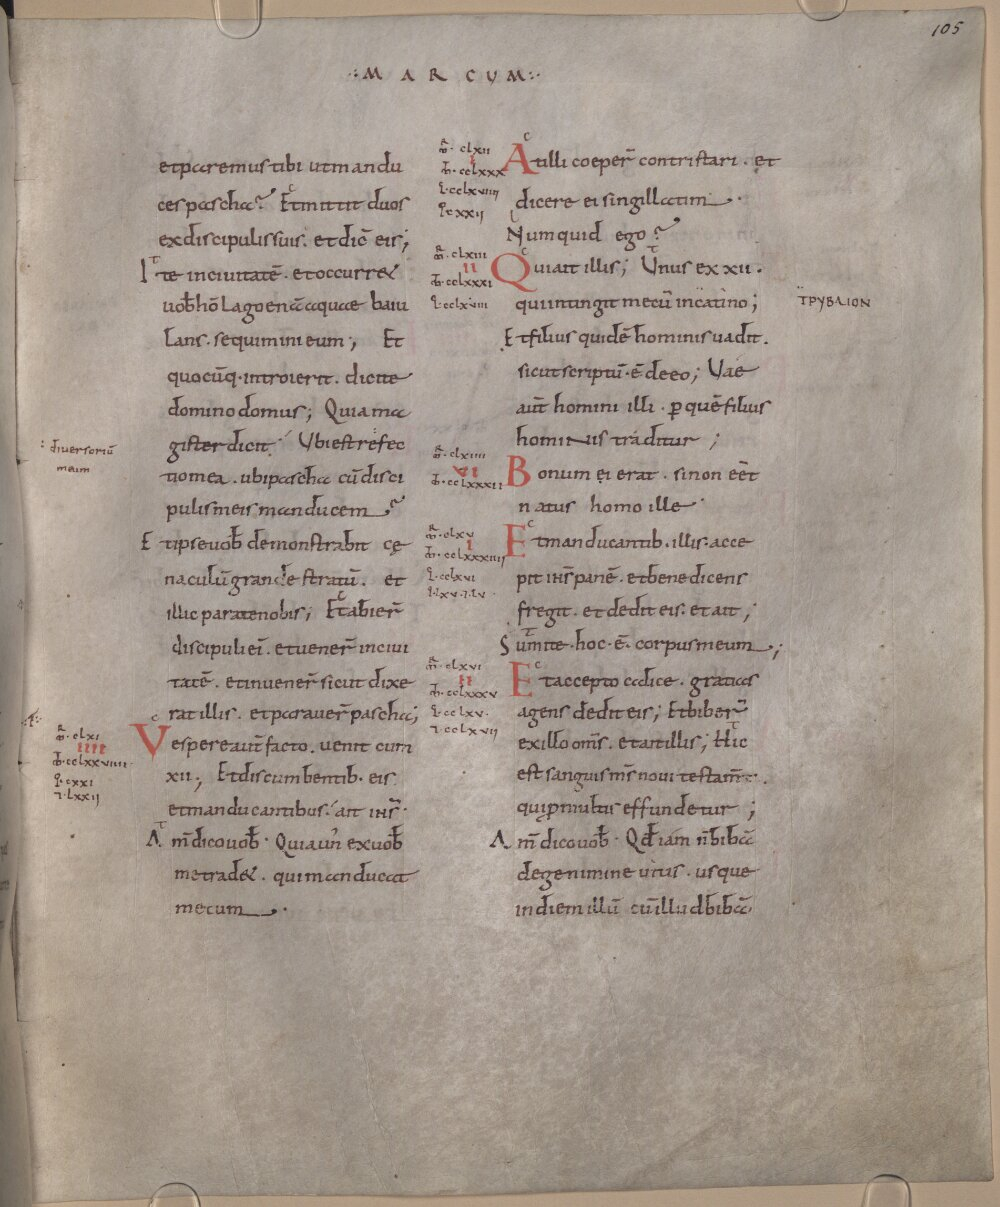 105
∴ M A R C U M ∴
et paremus tibi ut mandu
ces pascha? Et mittit duos
ex discipulis suis. et dic̄ eis;
Ite in civitatē. et occurret
vob̄ hō lagoenā aquae baiu
lans. sequimini eum; Et
quocūq. introierit. dicite
domino domus; Quia ma
gister dicit. Ubi est refec
tio mea. ubi pascha cū disci
pulis meis manducem?
: diversoriū
meum
Et ipse vob̄ demonstrabit cę
naculū grande stratū. et
illic parate nobis; Et abier̄
discipuli ei. et vener̄ in civi
tatē. et invener̄ sicut dixe
rat illis. et paraver̄ pascha;
m̄. clxi
IIII
io. cclxxviiii
l. cxxi
lxxii
Vespere aut̄ facto. venit cum
xii; Et discumbentib. eis
et manducantibus. ait ihs̄.
Am̄ dico vob̄. Quia un̄ ex vob̄
me tradet. qui manducat
mecum.
m̄. clxii
I
cclxxx
cclxviiii
cxxii
At illi coeper̄ contristari. et
dicere ei singillatim.
Numquid ego?
m̄. clxiii
II
cclxxxi
cclxviiii
Qui ait illis; Unus ex xii.
qui intingit mecū in catino;
ΤΡΥΒΛΙΟΝ
Et filius quidē hominis vadit.
sicut scriptū. ē. de eo; Vae
aut̄ homini illi. p quē filius
hominis traditur;
m̄. clxiiii
VI
cclxxxii
Bonum ei erat. si non eēt
natus homo ille.
m̄. clxv
I
cclxxxiiii
cclxvi
lxv. lv.
Et manducantib. illis. acce
pit ihs̄ panē. et benedicens
fregit. et dedit eis. et ait;
Sumite. hoc. ē. corpus meum;
m̄. clxvi
II
cclxxxv
cclxv.
cclxvii
Et accepto calice. gratias
agens dedit eis; Et biber̄
ex illo om̄s. et ait illis; Hic
est sanguis m̄s novi testam̄.
qui p multis effundetur;
Am̄ dico vob̄. Qđ iam n̄ bibā
de genimine vitis. usque
in diem illū cū illud bibā